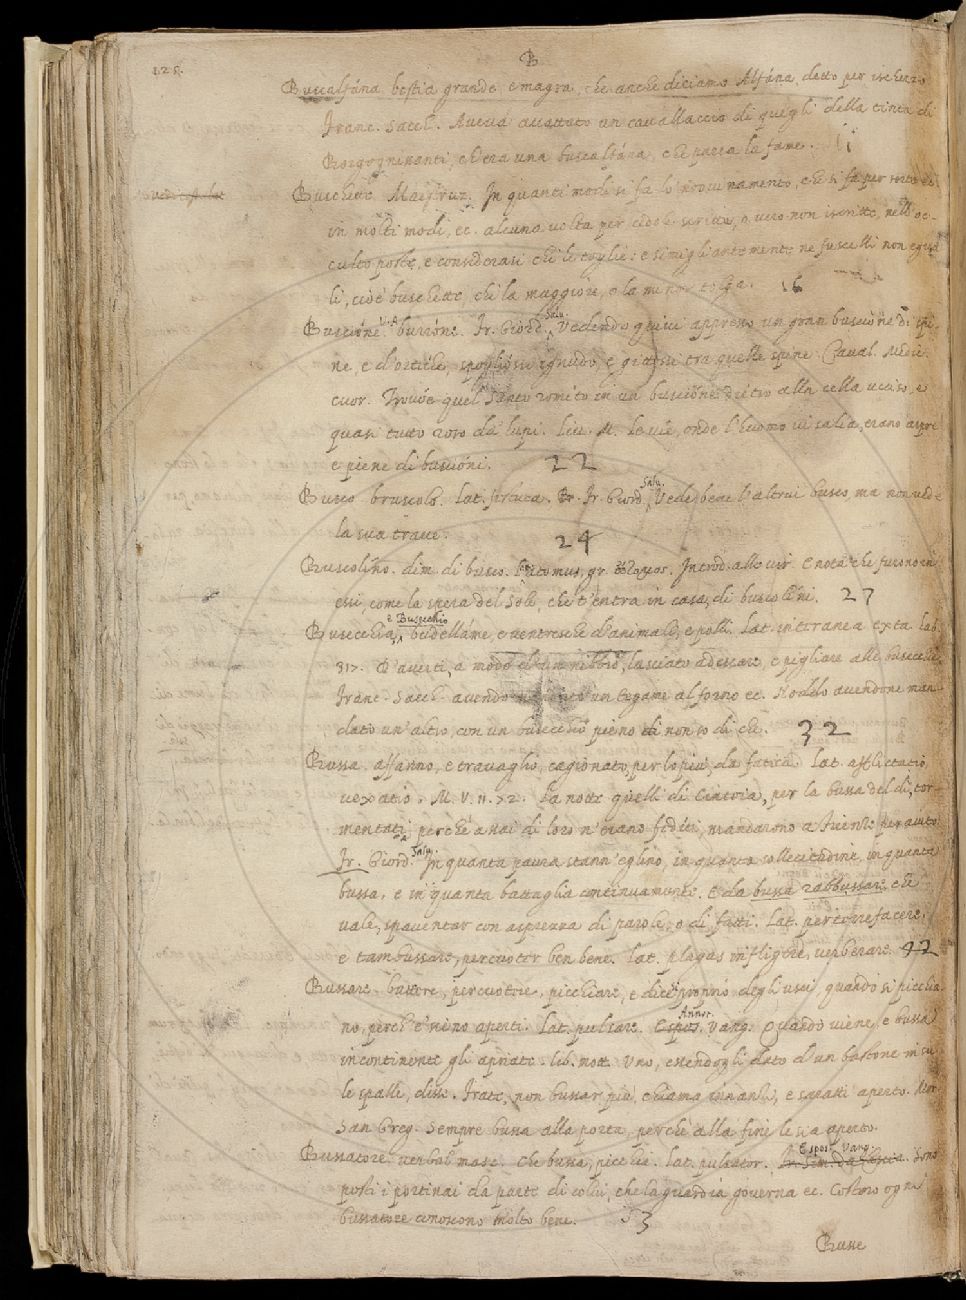 125.
B
Buscalfána bestia grande, e magra, che anche diciamo Alfána, detto per ischerzo
Franc. Sacch. Aveva accattato un cavallaccio di quegli della tinta di
Borgognissanti, ch'era una buscalfána, che parea la fame.
Buschette. Maestruz. In quanti modi si fa lo 'ndovinamento, che si fa per sorte
in molti modi, ec. alcuna volta per cedole scritte, o vero non iscritte, nell'oc-
culto poste, e considerasi chi le coglie: e simigliantemente ne fuscelli non egua-
li, cioè buschette, chi la maggiore, o la minor tolga. 16
Buscióne V. A. burróne. Fr. Giord. Salv. Vedendo quivi appresso un gran buscióne di spi-
ne, e d'ortiche, spogliossi ignudo, e gissi tra quelle spine. Caval. Medic.
cuor. Trovóe quel Santo romito in un buscióne dietro alla cella ucciso, e
quasi tutto roso da' lupi. Liv. M. Le vie, onde l'huomo vi salia, erano aspre
e piene di buscióni. 22
Busco bruscolo. Lat. festuca. Fr. Giord. Salv. Vede bene l'altrui busco, ma non vede
la sua trave. 24
Buscolíno. dim. di busco. Lat. atomus, gr. Introd. alle vir. E nota che furono in
essi, come la spera del Sole, che t'entra in casa, di buscolíni. 27
Busecchia, e Busecchio budelláme, e ventresche d'animali, e polli. Lat. intranea exta. Lab.
317. T'averti, a modo d'un nibbio, lasciato adescare, e pigliare alle busecchie
Franc. Sacch. avendo un tegame al forno ec. Hollo avendone man-
dato un'altro, con un busecchio pieno di non so di che. 32
Bussa, affanno, e travaglio, cagionato, per lo più, da fatica. Lat. afflictatio,
vexatio. M. V. 11. 72. La notte quelli di Cintoia, per la bussa del dì, tor-
mentati, perchè assai di loro n'erano fediti, mandarono a Firenze per aiuto
Fr. Giord. Salv. In quanta paura stann'eglino, in quanta sollecitudine, in quanta
bussa, e in quanta battaglia continuamente. E da bussa rabbussare che
vale, spaventar con asprezza di parole, o di fatti. Lat. perterrefacere,
e tambussare, percuoter ben bene. Lat. plagas infligere, verberare. 42
Bussare. battere, percuotere, picchiare, e dicesi proprio degli usci quando si picchia-
no, perch'e' sieno aperti. Lat. pulsare. Espos. Vang. Quando viene, e bussa
incontinente gli apriate. Lib. mott. Uno, essendogli dato d'un bastone in su
le spalle, disse. Frate, non bussar più, chiama innanzi, e saratti aperto. Mor.
San Greg. Sempre bussa alla porta, perchè alla fine le sia aperto.
Bussatore. verbal masc. Che bussa, picchia. Lat. pulsator. Espos. Vang. Sono
posti i portinai da parte di colui, che la guardia governa ec. Costoro ogni
bussatore conoscono molto bene. 53
Busse